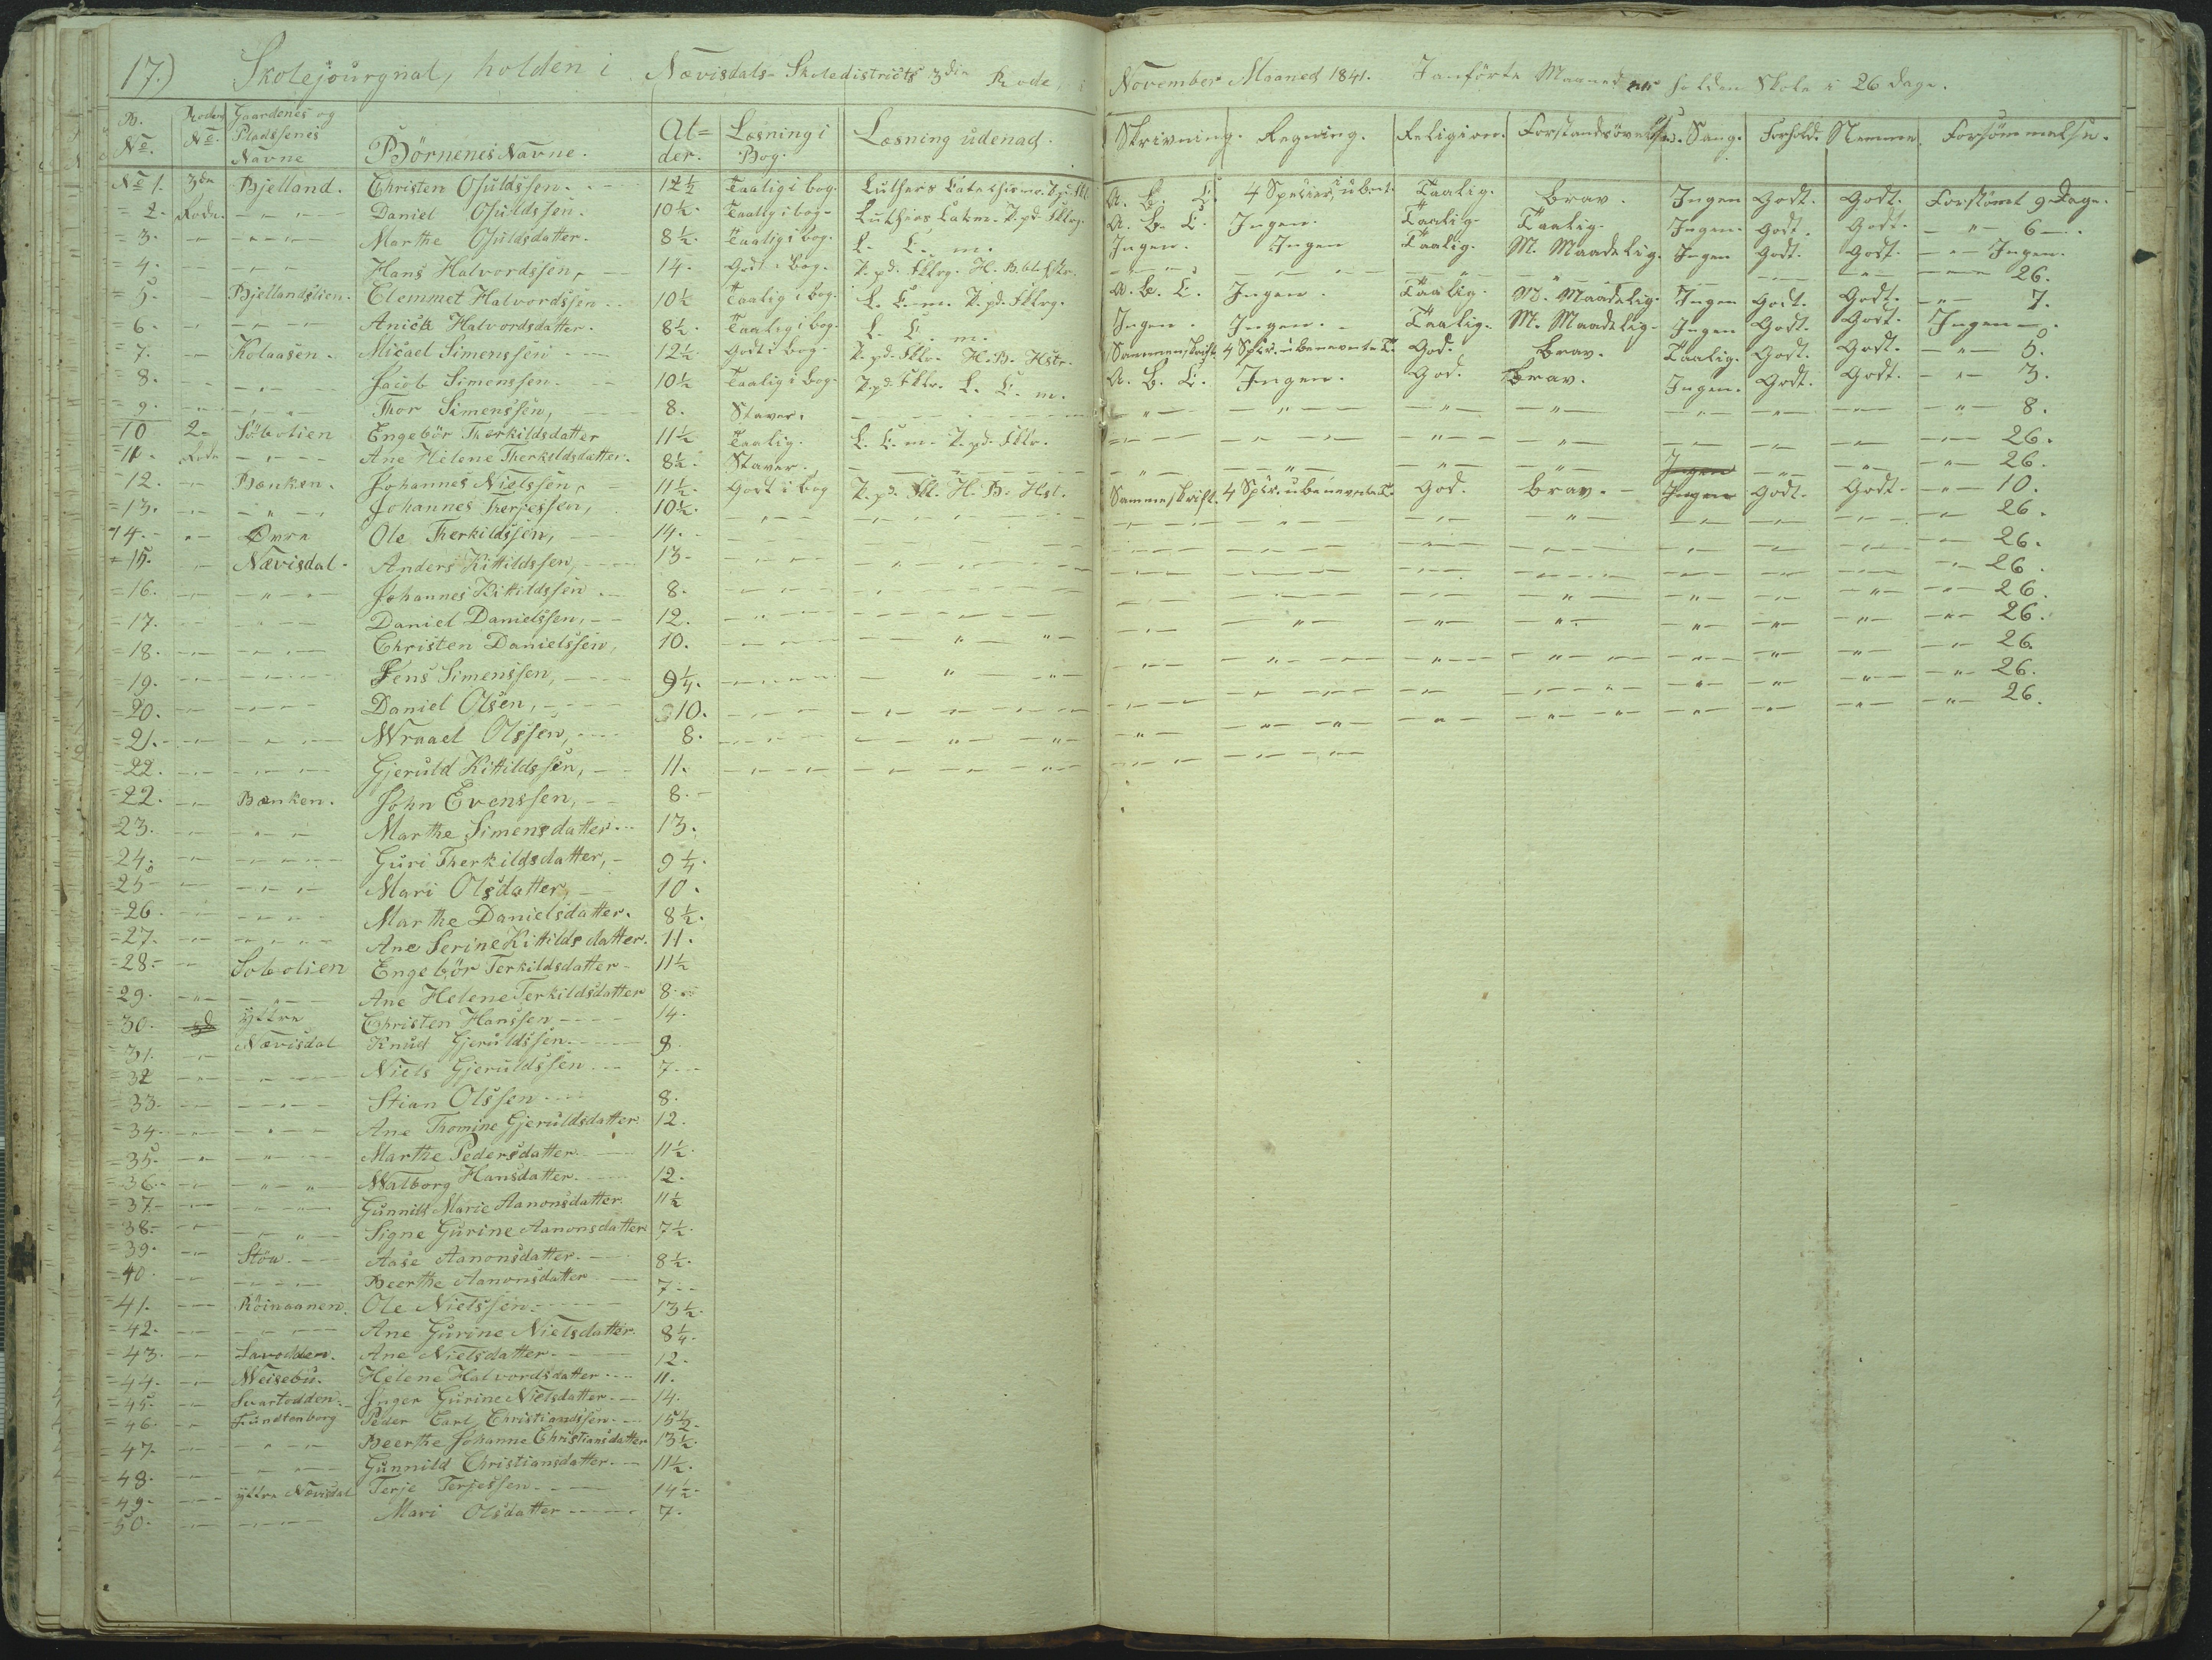 17.) Skolejournal, holden i Nævisdals-Skoledistricts 3die Rode, i November Maaned 1841. Janförte Maaned er holden Skole i 26 Dage.
B. No. Rodens No. Gaardenes og Pladssenes Navne Börnenes Navne. Al=der. Læsning i Bog. Læsning udenad. Skrivning. Regning. Religion. Forstandsövelse. Sang. Forhold. Nemme. Forsömmelse.
No 1. 3die Bjelland. Christen Osuldssen. 12½ Taalig i bog. Luthers Catechismo. A. B. C. 4 Specier, i ubent. Taalig. brav. Ingen Godt. Godt. Forsömt 9 Dage.
= 2. Rode. - - - Daniel Osuldssen. 10½. Taalig i bog. Luthers Catm. T. pd. Fklrg. A. B. C. Ingen. Taalig. Taalig. Ingen. Godt. Godt. - " - 6 -.
= 3. - - - Marthe Osuldsdatter. 8½. Taalig i bog. L. C. m. Ingen. Ingen Taalig. M. Maadelig. Ingen Godt. Godt. - " - Ingen.
= 4. - - - Hans Halvordssen, 14. Godt i Bog. T. pd. Fklrg. H. B. - - - 26.
= 5. - Bjellandslien. Clemmet Halvordssen 10½ Taalig i bog. L. C. m. T. pd. Fklrg. A. B. C. Ingen. Taalig. M. Maadelig. Ingen Godt. Godt. - " - 7.
= 6. - - - Anick Halvordsdatter. 8½. Taalig i bog. L. C. m. Ingen. Ingen. Taalig. M. Maadelig. Ingen Godt. Godt. Ingen -.
= 7. - Kolaasen. Micael Simenssen 12½ Godt i bog. T. pd. Fklr. H. B. Hstr. Sammenskrift. 4 Spir. ubenevnte T. God. brav. Taalig. Godt. Godt. - " - 5.
= 8. - - - Jacob Simenssen. 10½ Taalig i bog. T. pd. Fklr. L. C. m. A. B. C. Ingen. God. Brav. Ingen. Godt. Godt. - " - 3.
= 9. - - - Thor Simenssen, 8. Staver. - - - 8.
= 10 2. Söbolien Engebör Therkildsdatter 11½ Taalig. L. C. m. T. pd. Fklr. - - - 26.
= 11. Rode - - - Ane Helene Therkildsdatter. 8½. Staver. - - - Ingen - - - 26.
= 12. - Bænken. Johannes Nielssen, 11½. Godt i bog T. pd. Fkl. H. B. Hst. Sammeskrift. 4 Spir. ubenevnte T. God. brav. Ingen Godt. Godt - " - 10.
= 13. - - - Johannes Therjessen, 10½. - - - 26.
= 14. - Övre Ole Therkildssen, 14. - - - 26.
= 15. - Nævisdal. Anders Kittildssen, 13 - - - 26.
= 16. - - - Johannes Kittildssen 8. - - - 26.
= 17. - - - Daniel Danielssen, 12. - - - 26.
= 18. - - - Christen Danielssen, 10. - - - 26.
= 19. - - - Jens Simenssen, 9¼. - - - 26.
= 20. - - - Daniel Olsen, 10. - - - 26.
= 21. - - - Wraael Olssen, 8. - - -
= 22. - - - Gjeruld Kittildssen, 11. - - -
= 22. - Bænken. John Evenssen, 8.
= 23. - - - Marthe Simensdatter 13.
= 24. - - - Guri Therkildsdatter, 9¼.
= 25 - - - Mari Olsdatter, 10.
= 26. - - - Marthe Danielsdatter. 8½.
= 27. - - - Ane Serine Kittildsdatter. 11.
= 28. - Sobolien Engebör Terkildsdatter 11½
= 29. - - - Ane Helene Terkildsdatter 8
= 30. 3d yttre Christen Hanssen 14.
= 31. - Nævisdal Knud Gjeruldssen. 9
= 32 - - - Niels Gjeruldssen 7
= 33. - - - Stian Olssen 8.
= 34. - - - Ane Thomine Gjeruldsdatter 12.
= 35. - - - Marthe Pedersdatter 11½.
= 36. - - - Walborg Hansdatter. 12.
= 37. - - - Gunnild Marie Aanonsdatter. 11½
= 38. - - - Signe Gurine Aanonsdatter 7½.
= 39. - Stöa. Aase Aanonsdatter. 8½.
= 40. - - - Beerthe Aanonsdatter 7
= 41. - Röinaanen. Ole Nielssen 13½.
= 42. - - - Ane Gurine Nielsdatter. 8¼.
= 43. - Lavodden. Ane Nielsdatter. 12.
= 44. - Weisebu. Helene Halvordsdatter 11.
= 45. - Svartodden. Inger Gurine Nielsdatter. 14.
= 46. - Fundtenborg Peder Carl Christiandssen. 15½.
= 47. - - - Beerthe Johanne Christiansdatter 13½.
= 48. - - - Gunnild Christiansdatter. 11½.
= 49. - yttre Nævisdal Terje Terjessen 14½.
= 50. - - - Mari Olsdatter 7.